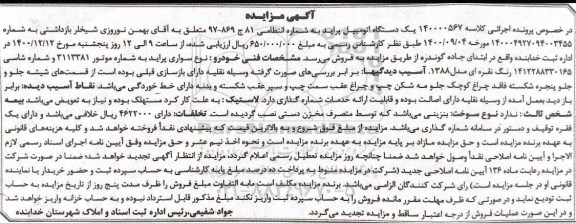 آگهی مزایده
در خصوص پرونده اجرائی کلاسه ۱۴۰۰۰۰۵۶۷ یک دستگاه اتومبیل پراید به شماره انتظامی ۸۱ ج ۸۶۹-۹۷ متعلق به آقای بهمن نوروزی شیخلر بازداشتی به شماره
۱۴۰۰۰۴۹۲۷۰۹۴۰۰۳۴۵۵ مورخه ۱۴۰۰/۰۹/۰۴ طبق نظر کارشناس رسمی به مبلغ ۶۵۰/۰۰۰/۰۰۰ ریال ارزیابی شده، از ساعت ۹ الی ۱۲ روز پنجشنبه مورخ ۱۴۰۰/۱۲/۱۲ در
اداره ثبت خدابنده واقع در ابتدای جاده گوندره از طریق مزایده به فروش می‌رسد. مشخصات فنی خودرو: نوع سواری پراید به شماره موتور ۳۱۱۳۳۸۱ و شماره شاسی
۱۴۱۲۲۸۸۳۳۰۱۶۵ رنگ نقره ای مدل ۱۳۸۸. آسیب دیدگیها: بر ابر بررسی‌های صورت گرفته وسیله نقلیه دارای بازسازی قبلی بوده است از قسمت‌های شیشه جلو و
جلو پنجره شکسته فاقد چراغ کوچک جلو مه شکن چپ و چراغ عقب سمت چپ و سپر عقب شکسته و بدنه دارای خط خوردگی می‌باشد. نقاط آسیب دیده: برابر
باز دید بعمل آمده از وسیله نقلیه دارای اصالت بوده و قابلیت ارائه خدمات شماره گذاری دارد. لاستیک: به علت کار کرد مستهلک بوده و نیاز به تعویض می‌باشد بیمه
شخص ثالث: ندارد نوع سوخت: بنزینی می‌باشد که توسط متصرف مخزن دستی نصب گردیده است. تخلفات: دارای ۴۶۲۲۰۰۰ ریال خلافی می‌باشد و دارای یک
فقره توقیف و دستور در سامانه شماره گذاری می‌باشد. مزایده از مبلغ فوق شروع و به بالاترین قیمت که پیشنهاد نقدا فروخته خواهد شد و کلیه هزینه‌های قانونی
به عهده برنده مزایده است و حق مزایده مازاد بر پایه مزایده به عهده برنده مزایده است و نحوه اخذ نیم عشر و حق مزایده وفق آیین نامه اجرای اسناد رسمی لازم
الاجرا و آیین نامه اصلاحی نقدا وصول خواهد شد ضمنا چنانچه روز مزایده تعطیل رسمی اعلام گردد، مزایده از انتظار آگهی تجدید خواهد شد ضمنا در صورت شرکت
در مزایده رعایت ماده ۱۳۶ آیین نامه اصلاحی جدید (شرکت در مزایده منوط به پرداخت ده درصد مبلغ پایه کارشناسی به حساب سپرده ثبت و حضور خریدار یا نماینده
قانونی او در جلسه مزایده است) رای شرکت کنندگان الزامی می‌باشد. برنده مزایده مکلف است مابه التفاوت مبلغ فروش را ظرف مدت پنج روز از تاریخ مزایده به حساب
ثبت تودیع نماید و در صورتی که ظرف مهلت مقرر مانده فروش را به حساب سپرده ثبت واریز نکند مبلغ مذکور قابل استرداد نبوده و به حساب خزانه واریز خواهد شد
و در این صورت عملیات فروش از درجه اعتبار ساقط و مزایده تجدید می‌گردد.
جواد شفیعی، رئیس اداره ثبت اسناد و املاک شهرستان خدابنده